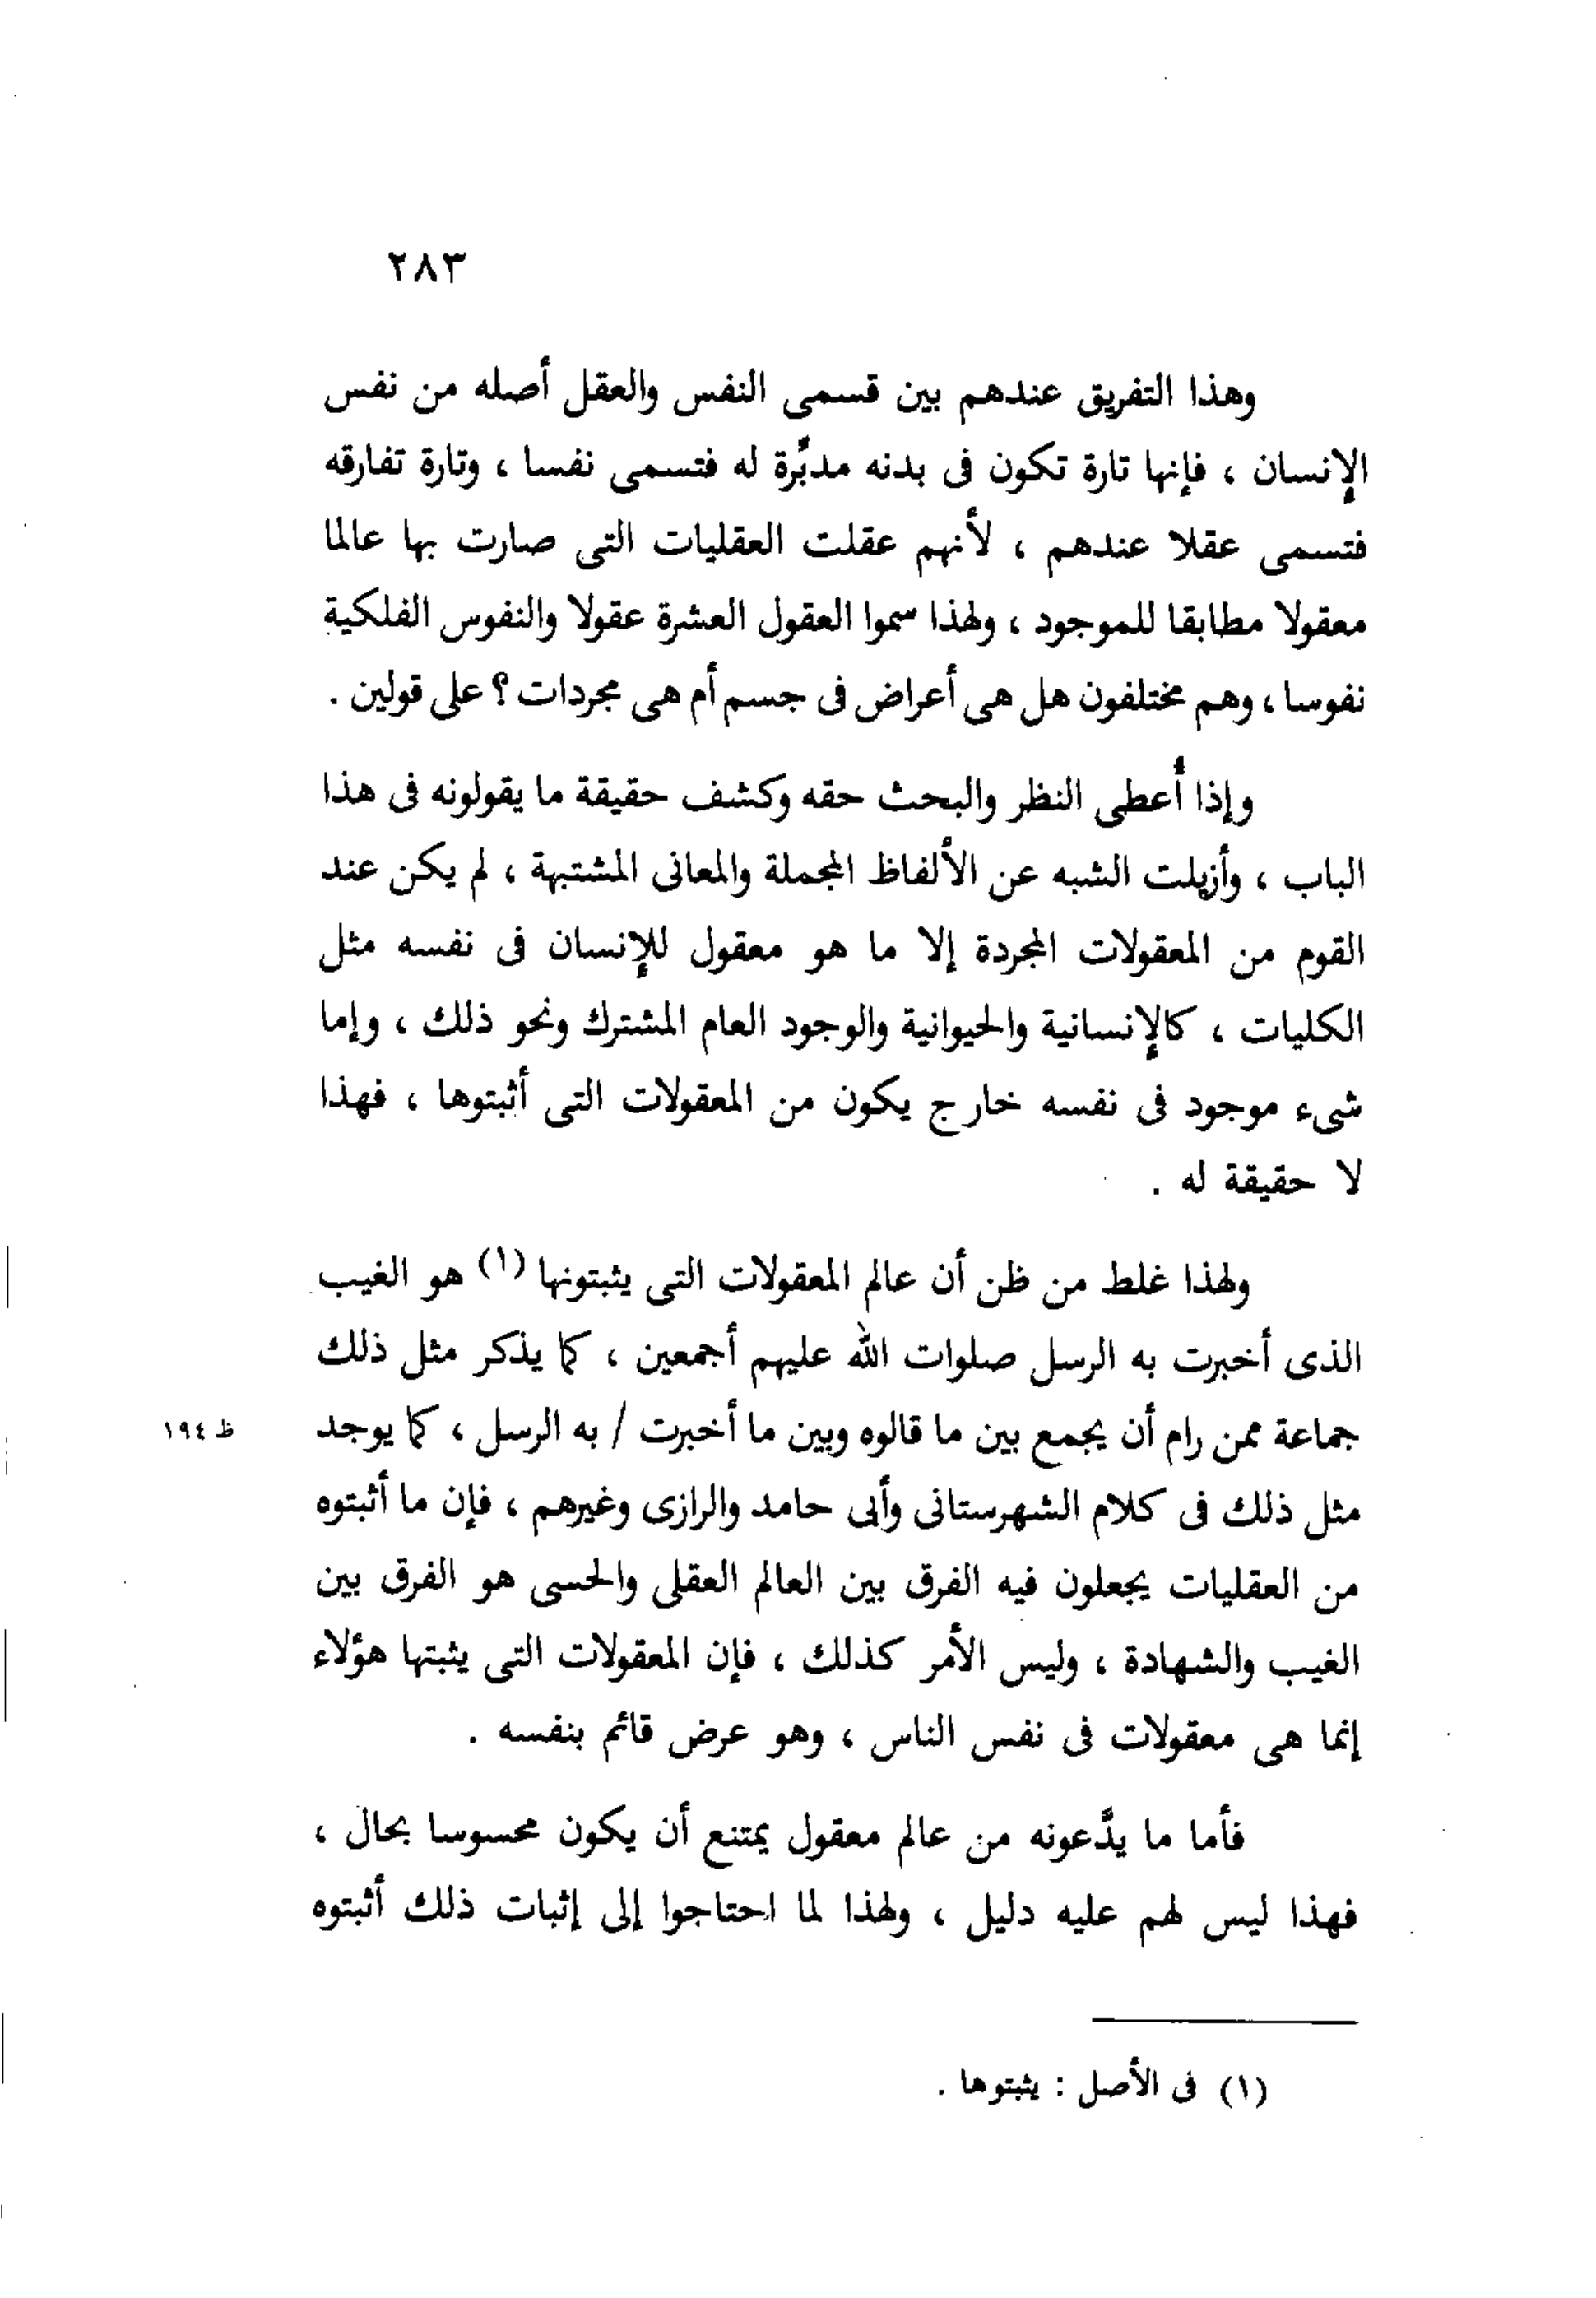 ٢٨٣
وهذا التفريق عندهم بين قسمى النفس والعقل أصله من نفس
الإنسان ، فإنها تارة تكون فى بدنه مدبِّرة له فتسمى نفسا ، وتارة تفارقه
فتسمى عقلا عندهم ، لأنهم عقلت العقليات التى صارت بها عالما
معقولا مطابقا للموجود ، ولهذا سموا العقول العشرة عقولا والنفوس الفلكية
نفوسا ، وهم مختلفون هل هى أعراض فى جسم أم هى مجردات ؟ على قولين .
وإذا أُعطى النظر والبحث حقه وكشف حقيقة ما يقولونه فى هذا
الباب ، وأزيلت الشبه عن الألفاظ المجملة والمعانى المشتبهة ، لم يكن عند
القوم من المعقولات المجردة إلا ما هو معقول للإنسان فى نفسه مثل
الكليات ، كالإنسانية والحيوانية والوجود العام المشترك ونحو ذلك ، وإما
شىء موجود فى نفسه خارج يكون من المعقولات التى أثبتوها ، فهذا
لا حقيقة له .
ولهذا غلط من ظن أن عالم المعقولات التى يثبتونها (١) هو الغيب
الذى أخبرت به الرسل صلوات الله عليهم أجمعين ، كما يذكر مثل ذلك
جماعة ممن رام أن يجمع بين ما قالوه وبين ما أخبرت / به الرسل ، كما يوجد ظ ١٩٤
مثل ذلك فى كلام الشهرستانى وأبى حامد والرازى وغيرهم ، فإن ما أثبتوه
من العقليات يجعلون فيه الفرق بين العالم العقلى والحسى هو الفرق بين
الغيب والشهادة ، وليس الأمر كذلك ، فإن المعقولات التى يثبتها هؤلاء
إنما هى معقولات فى نفس الناس ، وهو عرض قائم بنفسه .
فأما ما يدَّعونه من عالم معقول يمتنع أن يكون محسوسا بحال ،
فهذا ليس لهم عليه دليل ، ولهذا لما احتاجوا إلى إثبات ذلك أثبتوه
(١) فى الأصل : يثبتوها .